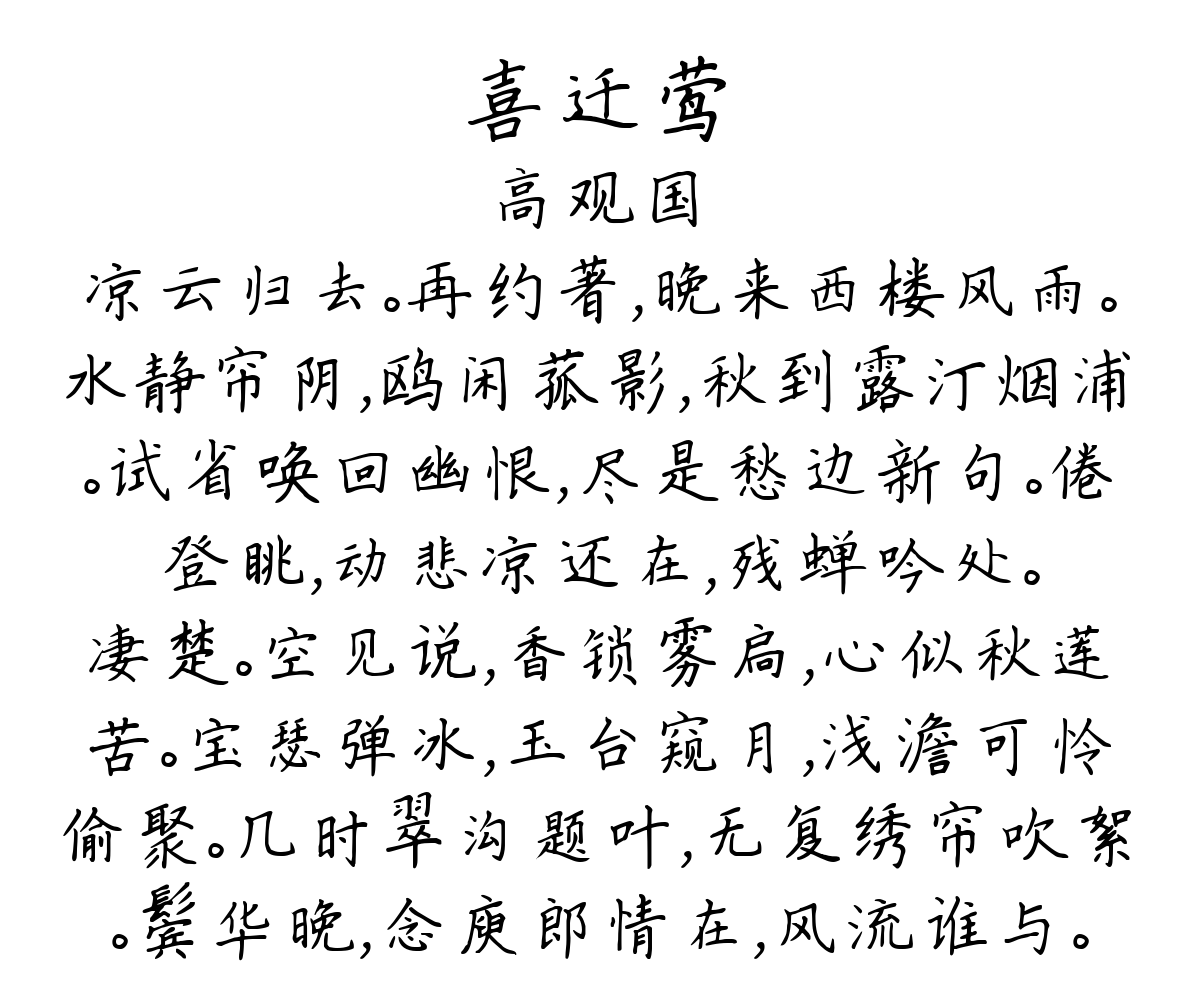 喜迁莺
高观国
凉云归去。再约著,晚来西楼风雨。
水静帘阴,鸥闲菰影,秋到露汀烟浦
。试省唤回幽恨,尽是愁边新句。倦
登眺,动悲凉还在,残蝉吟处。
凄楚。空见说,香锁雾扃,心似秋莲
苦。宝瑟弹冰,玉台窥月,浅澹可怜
偷聚。几时翠沟题叶,无复绣帘吹絮
。鬓华晚,念庾郎情在,风流谁与。